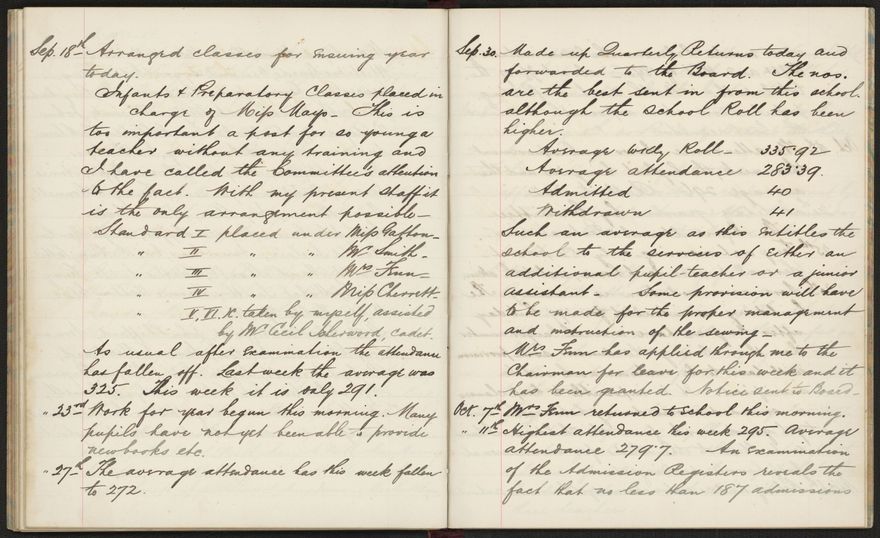 Sep. 18th Arranged classes for ensuing year
today.
Infants & Preparatory Classes placed in
charge of Miss Mays - This is
too important a post for so young a
teacher without any training and
I have called the Committee's attention
to the fact. With my present staff it
is the only arrangement possible -
Standard I placed under Miss Gatton -
" II " " Mr Smith -
" III " " Mrs Finn -
" IV " " Miss Cherrett -
" V, VI. &c. taken by myself assisted
by Mr Cecil Isherwood, cadet.
As usual after examination the attendance
has fallen off. Last week the average was
325. This week it is only 291.
" 23rd Work for year begun this morning. Many
pupils have not yet been able to provide
new books etc.
" 27th The average attendance has this week fallen
to 272.
Sep. 30. Made up Quarterly Returns today and
forwarded to the Board. The nos.
are the best sent in from this school
although the School Roll has been
higher.
Average wkly Roll 335.92
Average attendance 283.39.
Admitted 40
Withdrawn 41
Such an average as this entitles the
school to the services of either an
additional pupil teacher or a junior
assistant - Some provision will have
to be made for the proper management
and instruction of the sewing -
Mrs Finn has applied through me to the
Chairman for leave for this week and it
has been granted. Notice sent to Board -
Oct. 7th Mrs Finn returned to school this morning.
" 11th Highest attendance this week 295. Average
attendance 279.7. An examination
of the Admission Registers reveals the
fact that no less than 187 admissions